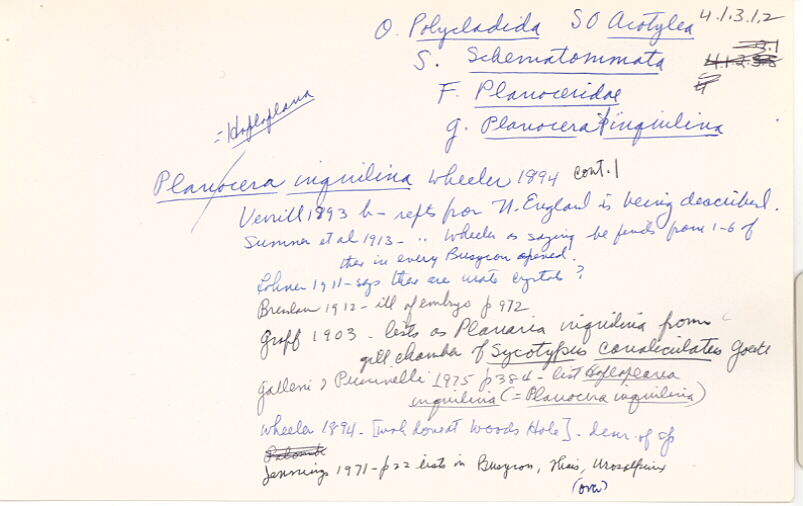 O. Polycladida SO Acotylea 4.1.3.1.2
S. Schematommata
F. Planoceridae
g. Planocera inquilina
= Hoploplana
Planocera inquilina Wheeler 1894 cont. 1
Verrill 1893 b - repts from N. England is being described.
Sumner et al 1913 - " Wheeler as saying he finds from 1-6 of
them in every Busycon opened.
1911 - says there are urate crystals ?
Breslau 1912 - ill of embryo p 972
Graff 1903 - lists as Planaria inquilina from
gill chamber of Sycotypus canaliculatus Goette
Galleni & Puccinelli 1975 p 384 - list Hoploplana
inquilina (= Planocera inquilina)
Wheeler 1894 - [work done at Woods Hole] - descr. of sp
Jennings 1971 - p 22 lists in Busycon, Thais, Urosalpinx
(over)